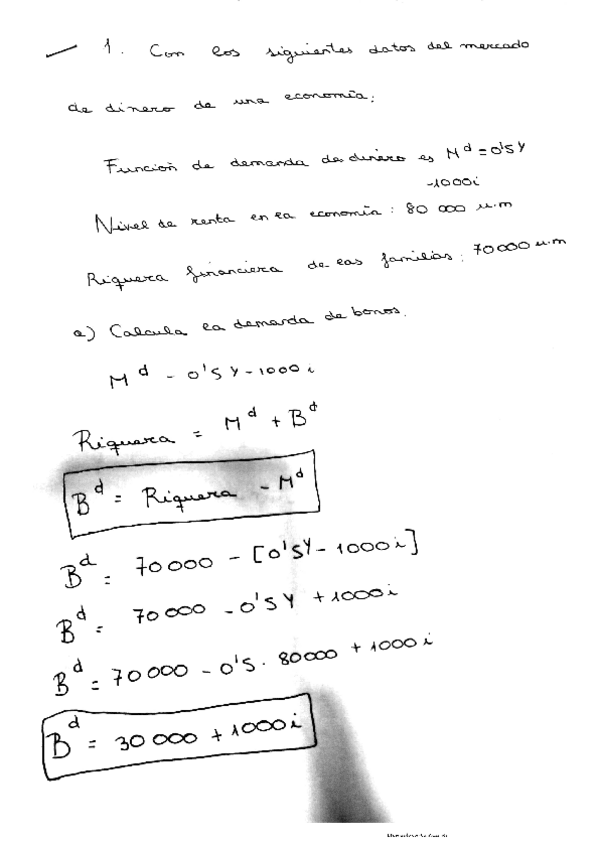 1. Con los siguientes datos del mercado
de dinero de una economía:
Función de demanda de dinero es M^d = 0'5Y
-1000i
Nivel de renta en la economía: 80 000 u.m
Riqueza financiera de las familias: 70000 u.m
a) Calcula la demanda de bonos.
M^d - 0'5Y - 1000i
Riqueza = M^d + B^d
B^d = Riqueza - M^d
B^d = 70000 - [0'5Y - 1000i]
B^d = 70000 - 0'5Y + 1000i
B^d = 70000 - 0'5 · 80000 + 1000i
B^d = 30000 + 1000i